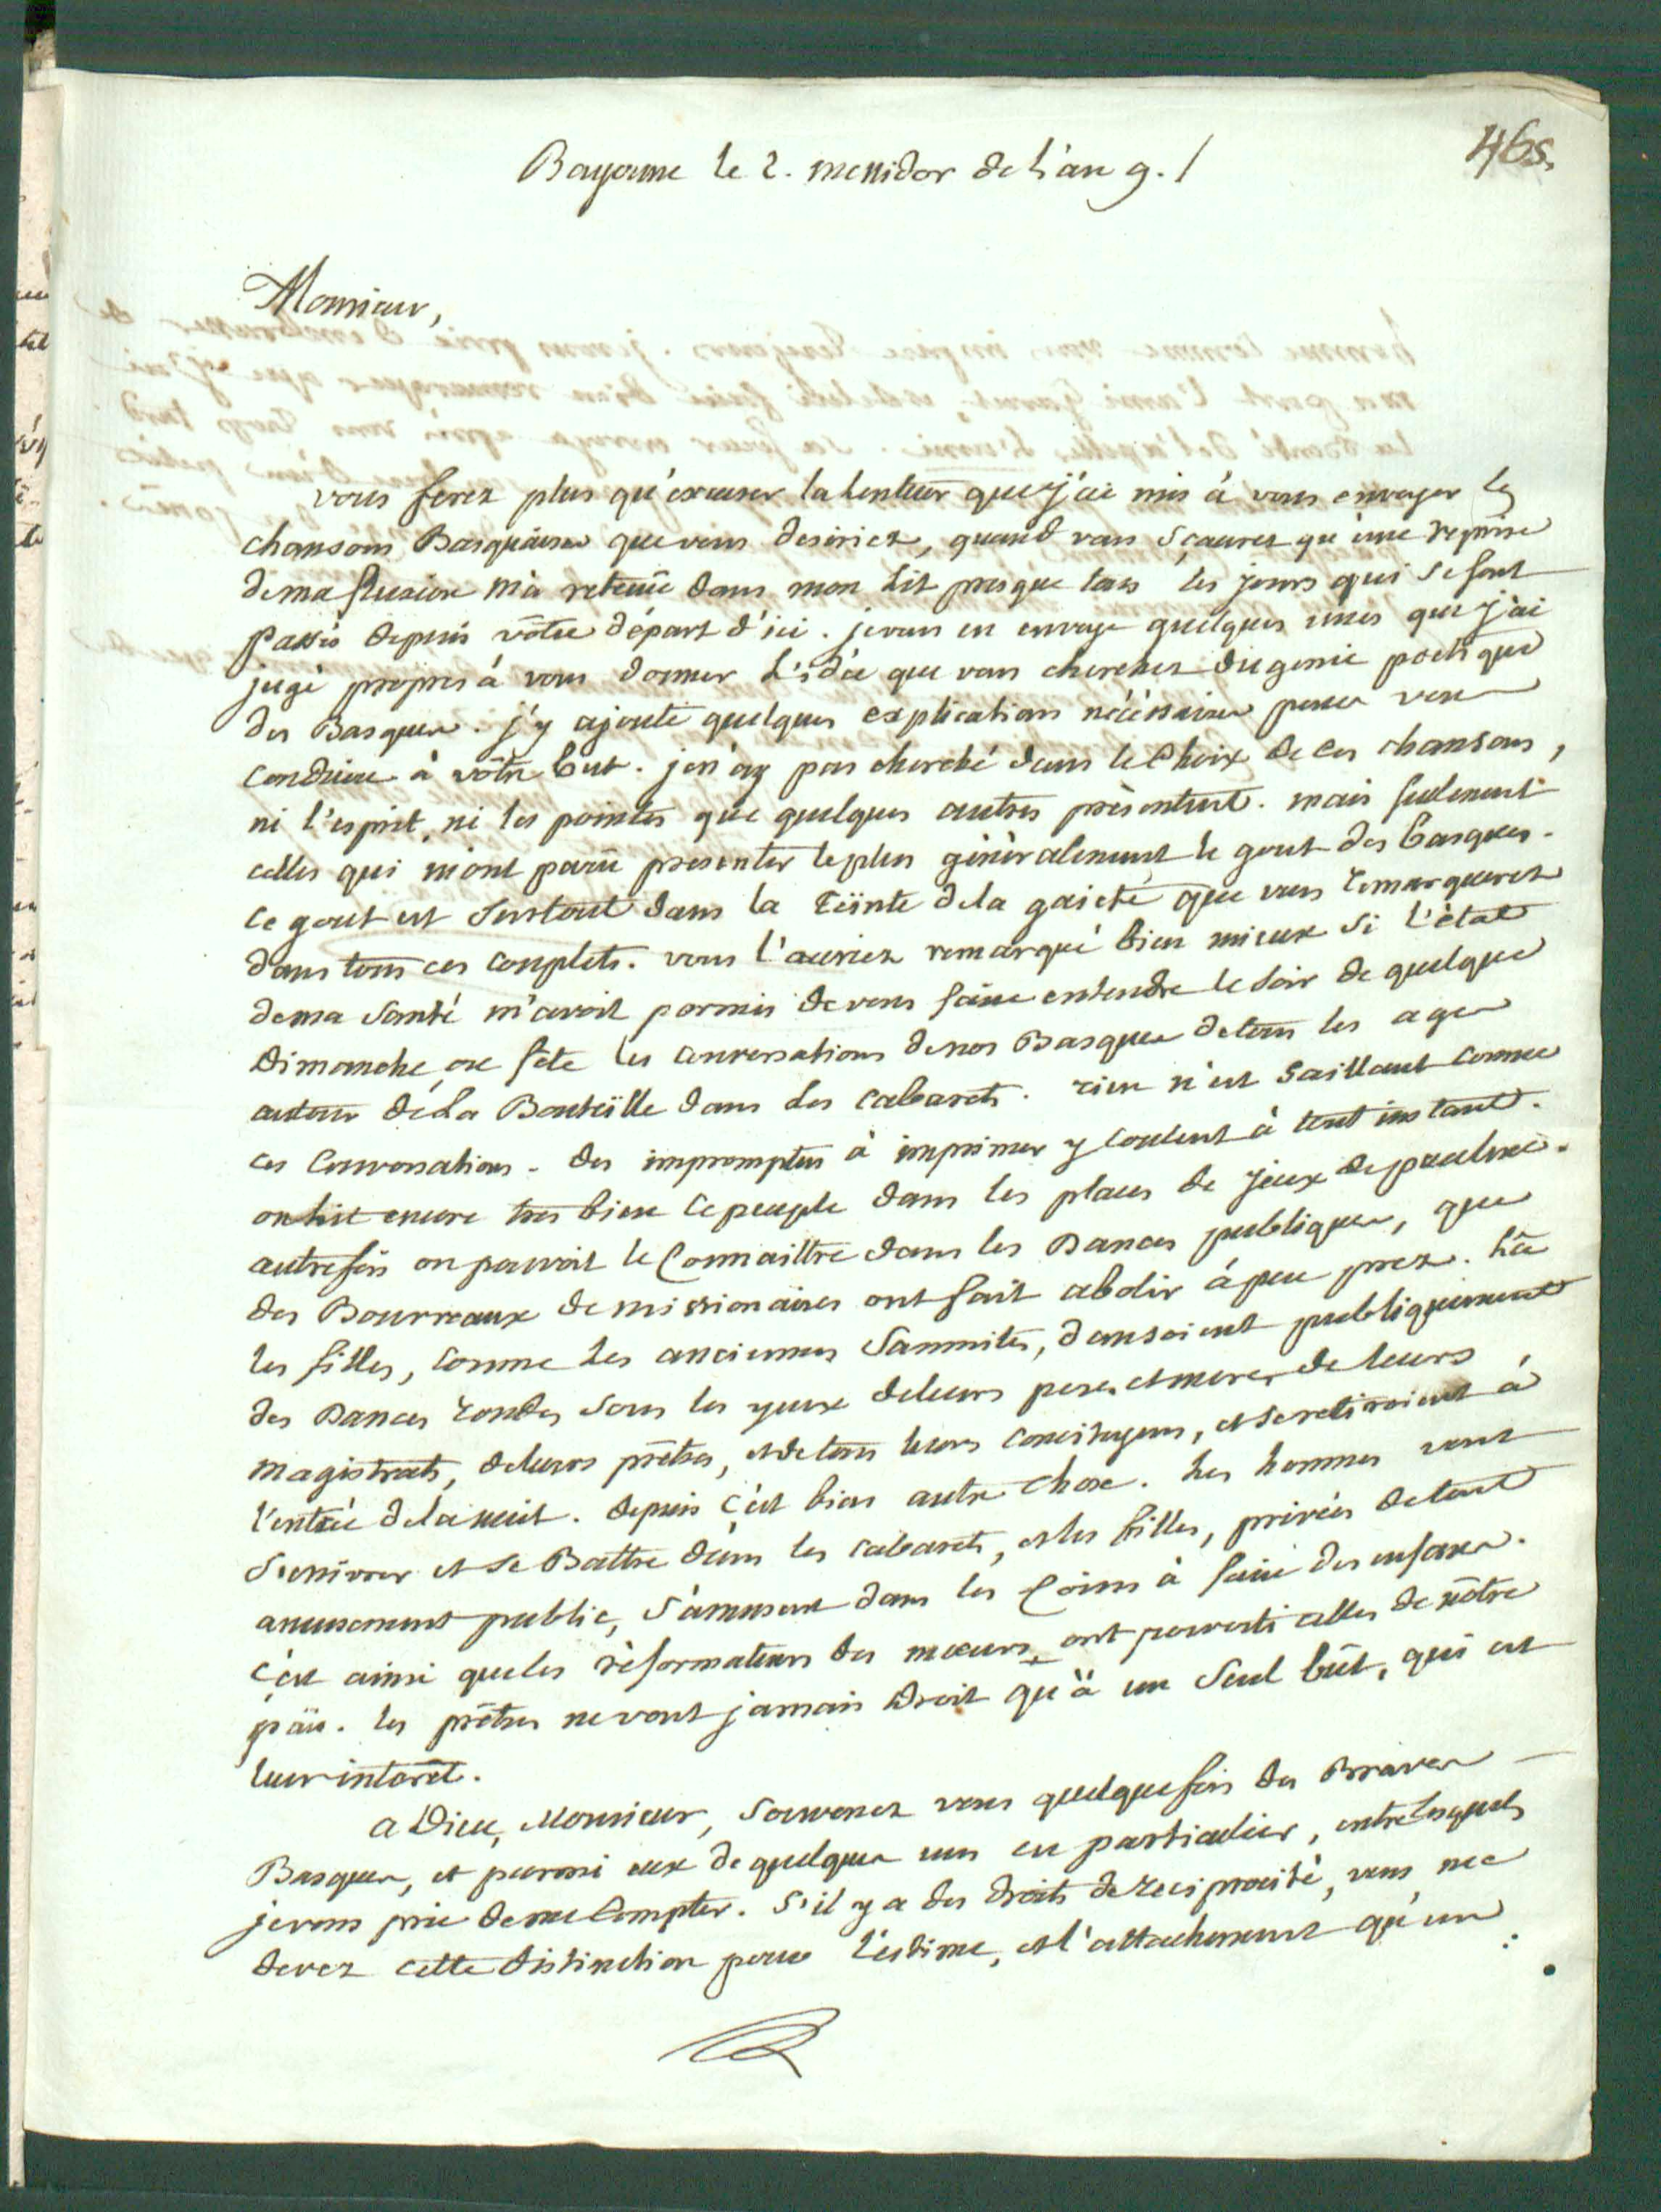 465.
Bayonne le 2. messidor de l'an 9. /
Monsieur,
vous ferez plus qu'excuser la lenteur que j'ai mis à vous envoyer les
chansons Basquaises que vous desiriez, quand vous sçaurez qu'une reprise
de ma fluxion m'a retenüe dans mon lit presque tous les jours qui se sont
passés depuis vôtre départ d'ici. je vous en envoye quelques unes que j'ai
jugé propres à vous donner l'idée que vous cherchez du genie poetique
des Basques. j'y ajoute quelques explications nécéssaires pour vous
conduire à vôtre but. je n'ay pas cherché dans le choix de ces chansons,
ni l'esprit, ni les pointes que quelques autres présentent. mais seulement
celles qui m'ont parû presenter le plus généralement le gout des basques.
ce gout est surtout dans la teïnte de la gaieté que vous remarquerez
dans tous ces couplets. vous l'auriez remarqué bien mieux si l'état
de ma santé m'avoit permis de vous faire entendre le soir de quelque
dimanche ou fête les conversations de nos Basques de tous les ages
autour de la Bouteïlle dans les cabarets. rien n'est saillant comme
ces conversations. des impromptus à imprimer y coulent à tout instant.
on lit encore tres bien ce peuple dans les places de jeux de paulme.
autrefois on pouvoit le connaittre dans les Dances publiques, que
des Bourreaux de missionaires ont fait abolir à peu prez. là
les filles, comme les anciennes Samnites, dansoient publiquement
des Dances rondes sous les yeux de leurs peres et meres de leurs
magistrats, de leurs prêtres, et de tous leurs concitoyens, et se retiroient à
l'entrée de la nuit. depuis c'est bien autre chose. les hommes vont
s'enivrer et se Battre dans les cabarets, et les filles, privées de tout
amusement public, s'amusent dans les coins à faire des enfans.
c'est ainsi que les réformateurs des moeurs, ont perverti celles de nôtre
païs. les prêtres ne vont jamais droit qu'à un seul bût, qui est
leur intérêt.
a Dieu, Monsieur, souvenez vous quelquefois des Braves
Basques, et parmi eux de quelques uns en particulier, entre lesquels
je vous prie de me compter. s'il y a des droits de reciprocité, vous me
devez cette distinction pour l'estime, et l'attachement qu'un